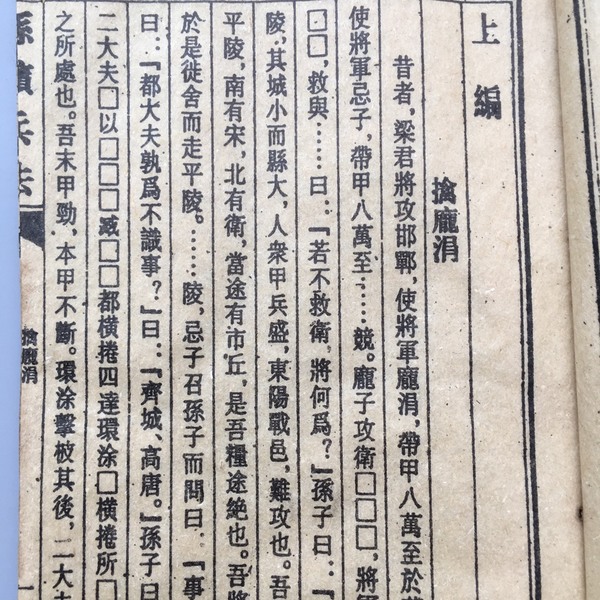 上編
擒龐涓
昔者，梁君將攻邯鄲，使將軍龐涓，帶甲八萬至於
使將軍忌子，帶甲八萬至……競。龐子攻衛□□□，將軍
□□，救與……曰：「若不救衛，將何爲？」孫子曰：「
陵，其城小而縣大，人衆甲兵盛，東陽戰邑，難攻也。吾
平陵，南有宋，北有衛，當途有市丘，是吾糧途絶也。吾將
於是徙舍而走平陵。……陵，忌子召孫子而問曰：「事
曰：「都大夫孰爲不識事？」曰：「齊城、高唐。」孫子曰
二大夫□以□□□臧□□都橫捲四達環涂□橫捲所□
之所處也。吾末甲勁，本甲不斷。環涂擊柀其後，二大夫
孫臏兵法
擒龐涓
一